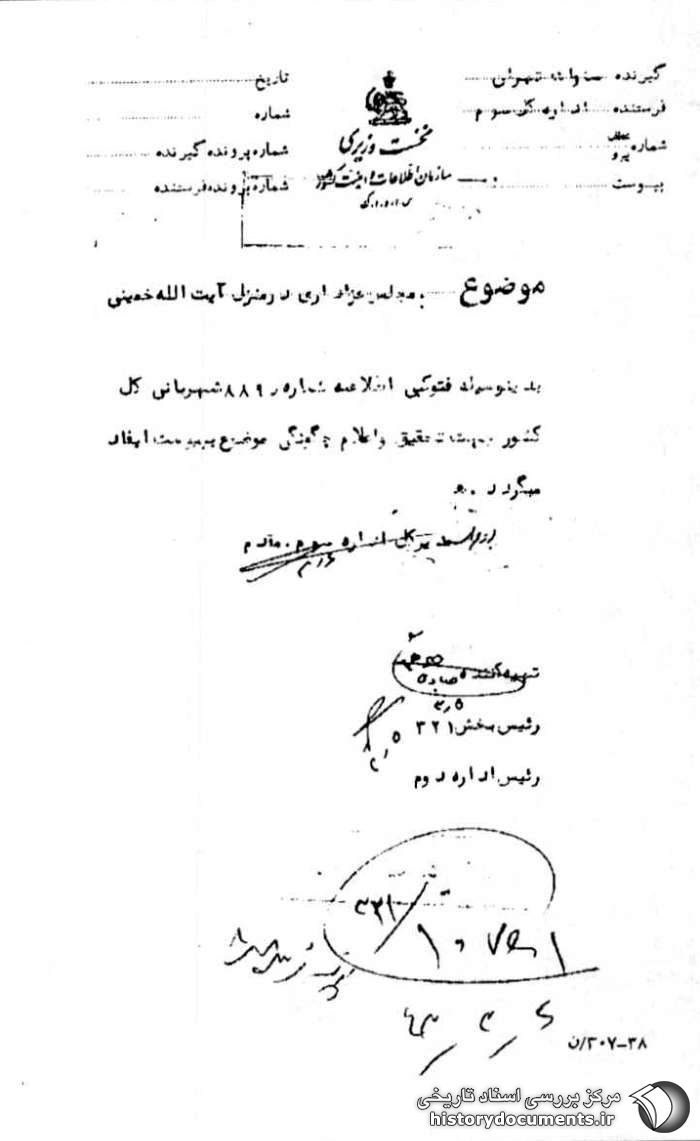 گیرنده ساواک تهران
فرستنده اداره کل سوم
شماره
پیوست
نخست وزیری
سازمان اطلاعات و امنیت کشور
س.ا.و.ا.ک
تاریخ
شماره
شماره پرونده گیرنده
شماره پرونده فرستنده
موضوع مجلس عزاداری در منزل آیت الله خمینی
بدینوسیله فتوکپی اطلاعیه شماره ۸۸۹ شهربانی کل
کشور جهت تحقیق و اعلام چگونگی موضوع بپیوست ایفاد
میگردد
مدیر کل اداره سوم . مقدم
تهیه کننده
رئیس بخش ۳۲۱
رئیس اداره دوم
۳۲۱
۳۰۷-۳۸/ن
مرکز بررسی اسناد تاریخی
historydocuments.ir